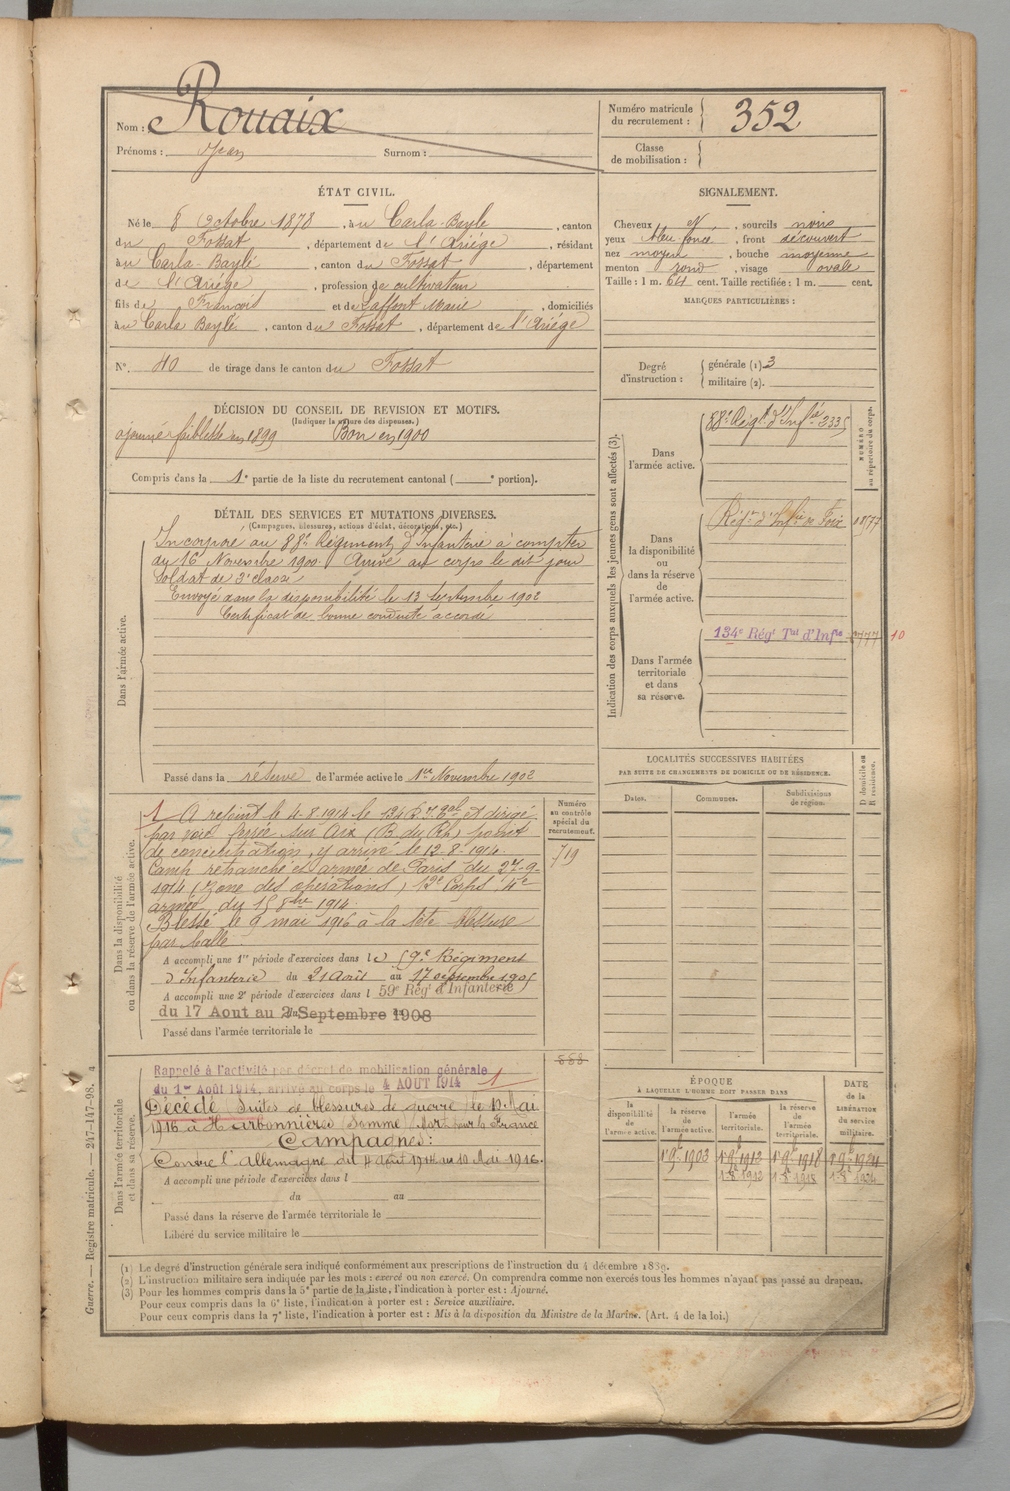 Nom : Rouaix
Prénoms : Jean Surnom :
Numéro matricule
du recrutement : 352
Classe
de mobilisation :
ÉTAT CIVIL.
Né le 8 Octobre 1878, à u Carla-Bayle, canton
du Fossat, département de l'Ariége, résidant
à u Carla-Baylé, canton du Fossat, département
de l'Ariége, profession de cultivateur
fils de François et de Laffont Marie, domiciliés
à u Carla Baylé, canton du Fossat, département de l'Ariége
N°. 40 de tirage dans le canton du Fossat
SIGNALEMENT.
Cheveux N, sourcils noirs
yeux bleu foncé, front découvert
nez moyen, bouche moyenne
menton rond, visage ovale
Taille : 1 m. 64 cent. Taille rectifiée : 1 m. cent.
MARQUES PARTICULIÈRES :
Degré
d'instruction :
générale (1). 3
militaire (2).
DÉCISION DU CONSEIL DE REVISION ET MOTIFS.
(Indiquer la nature des dispenses.)
ajourné faiblesse en 1899 Bon en 1900
Compris dans la 1e partie de la liste du recrutement cantonal ( e portion).
DÉTAIL DES SERVICES ET MUTATIONS DIVERSES.
(Campagnes, blessures, actions d'éclat, décorations, etc.)
Dans l'armée active.
Incorporé au 88e Régiment d'Infanterie à compter
du 16 Novembre 1900. Arrivé au corps le dit jour
Soldat de 2e classe
Envoyé dans la disponibilité le 13 septembre 1902
Certificat de bonne conduite accordé
Passé dans la réserve de l'armée active le 1er Novembre 1902
Indication des corps auxquels les jeunes gens sont affectés (3).
NUMÉRO
au répertoire du corps.
Dans
l'armée active.
88e Régt d'Infie 2335
Dans
la disponibilité
ou
dans la réserve
de
l'armée active.
Régnt d'Infie de Foix
Dans l'armée
territoriale
et dans
sa réserve.
134e Régt Tal d'Infie 10
LOCALITÉS SUCCESSIVES HABITÉES
PAR SUITE DE CHANGEMENTS DE DOMICILE OU DE RÉSIDENCE.
Dates. Communes. Subdivisions
de région.
D domicile ou
R résidence.
Dans la disponibilité
ou dans la réserve de l'armée active.
Numéro
au contrôle
spécial du
recrutement.
719
1 A rejoint le 4-8-1914 le 134 R.I. et dirigé
par voie ferrée sur Arx (B. du Rh) point
de concentration, y arrivé le 12-8-1914.
Camp retranché et armée de Paris du 27-9-
1914 (Zone des opérations) 13e Corps 4e
armée du 15 8bre 1914.
Blessé le 9 mai 1916 à la tête blessure
par balle.
A accompli une 1re période d'exercices dans le 59e Régiment
d'Infanterie du 21 août au 17 septembre 1905
A accompli une 2e période d'exercices dans l 59e Rég' d'Infanterie
du 17 Aout au Septembre 1908
Passé dans l'armée territoriale le
Dans l'armée territoriale
et dans sa réserve.
Rappelé à l'activité par décret de mobilisation générale
du 1er Août 1914, arrivé au corps le 4 AOUT 1914 1
Décédé Suites de blessures de guerre le 10 Mai
1916 à Harbonnières Somme Mort pour la France
Campagnes :
Contre l'Allemagne du 4 Août 1914 au 10 Mai 1916.
A accompli une période d'exercices dans l
du au
Passé dans la réserve de l'armée territoriale le
Libéré du service militaire le
ÉPOQUE
À LAQUELLE L'HOMME DOIT PASSER DANS
la
disponibilité
de
l'armée active.
la réserve
de
l'armée active.
l'armée
territoriale.
la réserve
de
l'armée
territoriale.
DATE
de la
LIBÉRATION
du service
militaire.
1 9bre 1903 1 9bre 1912 1 9bre 1918 1 9bre 1924
(1) Le degré d'instruction générale sera indiqué conformément aux prescriptions de l'instruction du 4 décembre 1889.
(2) L'instruction militaire sera indiquée par les mots : exercé ou non exercé. On comprendra comme non exercés tous les hommes n'ayant pas passé au drapeau.
(3) Pour les hommes compris dans la 5e partie de la liste, l'indication à porter est : Ajourné.
Pour ceux compris dans la 6e liste, l'indication à porter est : Service auxiliaire.
Pour ceux compris dans la 7e liste, l'indication à porter est : Mis à la disposition du Ministre de la Marine. (Art. 4 de la loi.)
Guerre. — Registre matricule. — 247-147-98.